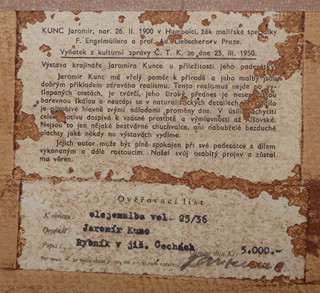 KUNC Jaromír, nar. 26. II. 1900 v Humpolci, žák malířské speciálky
F. Engelmüllera a prof. Ad. Liebscherov Praze.
Výňatek z kulturní zprávy Č. T. K. ze dne 25. III. 1950.
Výstava krajináře Jaromíra Kunce u příležitosti jeho padesátky.
Jaromír Kunc má vřelý poměr k přírodě a jeho malby jsou
dobrým příkladem zdravého realismu. Tento realismus nejde po vy-
šlapaných cestách, je tvůrčí, jeho široký přednes je
barevnou škálou a neutápí se v naturalistických detailech.
je půvabné hlavně svými náladami proměny dne. V úsilí
motivu dospívá k vzácné prostotě a výmluvnosti až
Nejsou to jen nějaké bezvtárné chuchvalce, ani nabubřelé bezduché
plachty jaké někdy na výstavách vidíme.
Jejich autor může být plně spokojen při své padesátce s dílem
vykonaným a dále rostoucím. Našel svůj osobitý projev a zůstal
mu věren.
Ověřovací list
olejomalba vel. 25/36
Jaromír Kunc
Rybník v již. Čechách
5.000.-